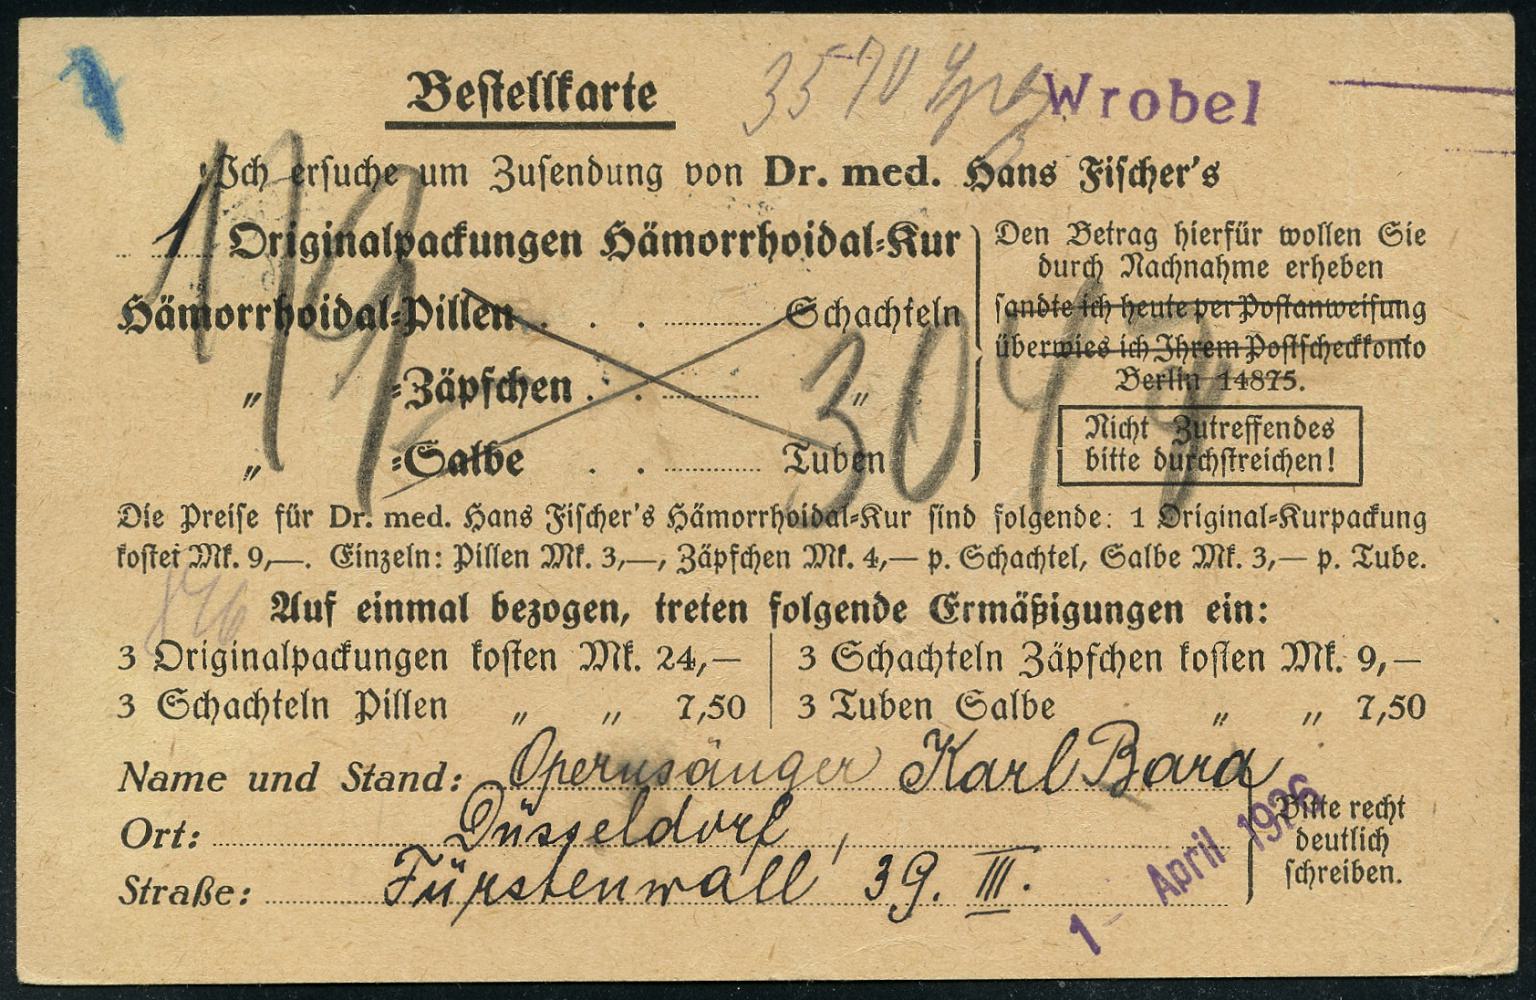 Bestellkarte
3570
Wrobel
Ich ersuche um Zusendung von Dr. med. Hans Fischer's
1 Originalpackungen Hämorrhoidal-Kur
Hämorrhoidal-Pillen . . . Schachteln
„ -Zäpfchen . . „
„ -Salbe . . Tuben
Den Betrag hierfür wollen Sie
durch Nachnahme erheben
sandte ich heute per Postanweisung
überwies ich Ihrem Postscheckkonto
Berlin 14875.
Nicht Zutreffendes
bitte durchstreichen!
Die Preise für Dr. med. Hans Fischer's Hämorrhoidal-Kur sind folgende: 1 Original-Kurpackung
kostet Mk. 9,—. Einzeln: Pillen Mk. 3,—, Zäpfchen Mk. 4,— p. Schachtel, Salbe Mk. 3,— p. Tube.
Auf einmal bezogen, treten folgende Ermäßigungen ein:
3 Originalpackungen kosten Mk. 24,—
3 Schachteln Pillen „ „ 7,50
3 Schachteln Zäpfchen kosten Mk. 9,—
3 Tuben Salbe „ „ 7,50
Name und Stand: Opernsänger Karl Bara
Ort: Düsseldorf,
Straße: Fürstenwall 39. III.
Bitte recht
deutlich
schreiben.
1- April 1926